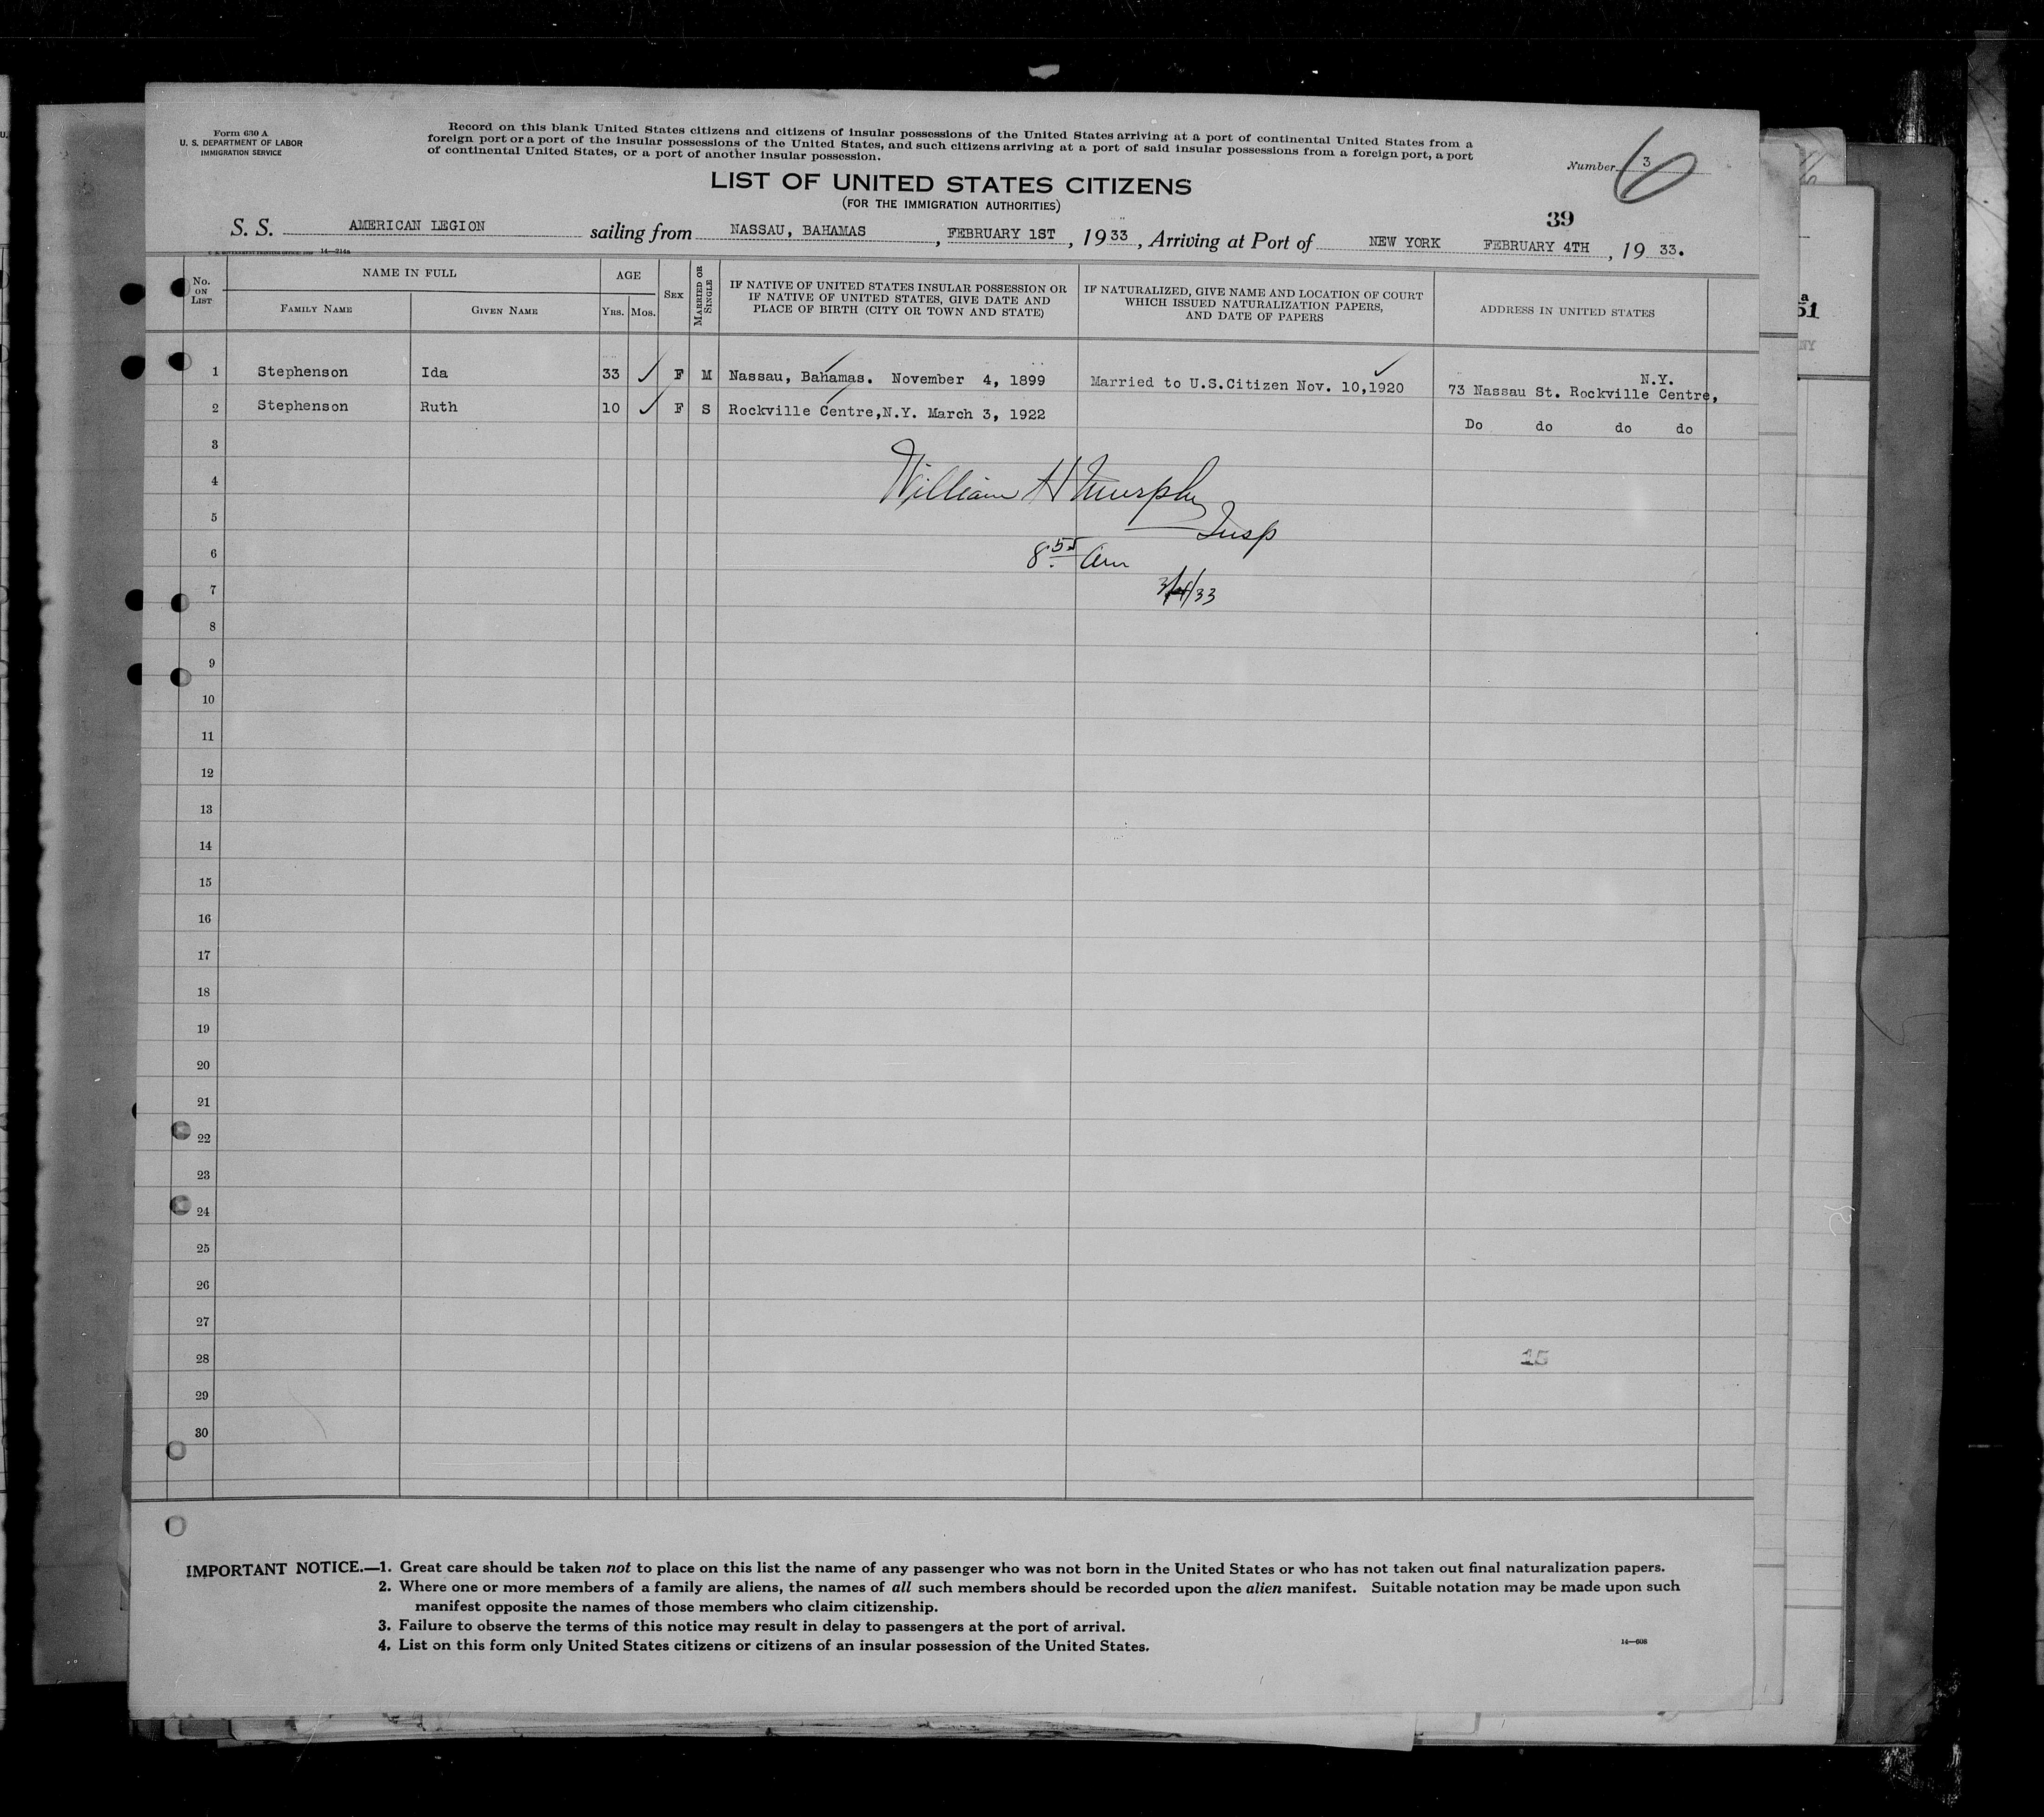 Form 630 A
U. S. DEPARTMENT OF LABOR
IMMIGRATION SERVICE
Record on this blank United States citizens and citizens of insular possessions of the United States arriving at a port of continental United States from a
foreign port or a port of the insular possessions of the United States, and such citizens arriving at a port of said insular possessions from a foreign port, a port
of continental United States, or a port of another insular possession.
Number 3
6
LIST OF UNITED STATES CITIZENS
(FOR THE IMMIGRATION AUTHORITIES)
39
S. S. AMERICAN LEGION sailing from NASSAU, BAHAMAS, FEBRUARY 1ST, 1933, Arriving at Port of NEW YORK FEBRUARY 4TH, 1933.
14—214a
No. ON LIST
NAME IN FULL
FAMILY NAME
GIVEN NAME
AGE
YRS.
MOS.
SEX
MARRIED OR SINGLE
IF NATIVE OF UNITED STATES INSULAR POSSESSION OR
IF NATIVE OF UNITED STATES, GIVE DATE AND
PLACE OF BIRTH (CITY OR TOWN AND STATE)
IF NATURALIZED, GIVE NAME AND LOCATION OF COURT
WHICH ISSUED NATURALIZATION PAPERS,
AND DATE OF PAPERS
ADDRESS IN UNITED STATES
1 Stephenson Ida 33 ✓ F M Nassau, Bahamas. November 4, 1899 Married to U.S.Citizen Nov. 10,1920 73 Nassau St. Rockville Centre, N.Y.
2 Stephenson Ruth 10 ✓ F S Rockville Centre,N.Y. March 3, 1922 Do do do do
3
4
William H Murphy
5
Insp
6
8 55 Am
7
8
9
10
11
12
13
14
15
16
17
18
19
20
21
22
23
24
25
26
27
28
15
29
30
IMPORTANT NOTICE.—1. Great care should be taken not to place on this list the name of any passenger who was not born in the United States or who has not taken out final naturalization papers.
2. Where one or more members of a family are aliens, the names of all such members should be recorded upon the alien manifest. Suitable notation may be made upon such
manifest opposite the names of those members who claim citizenship.
3. Failure to observe the terms of this notice may result in delay to passengers at the port of arrival.
4. List on this form only United States citizens or citizens of an insular possession of the United States.
14—608
51
NY